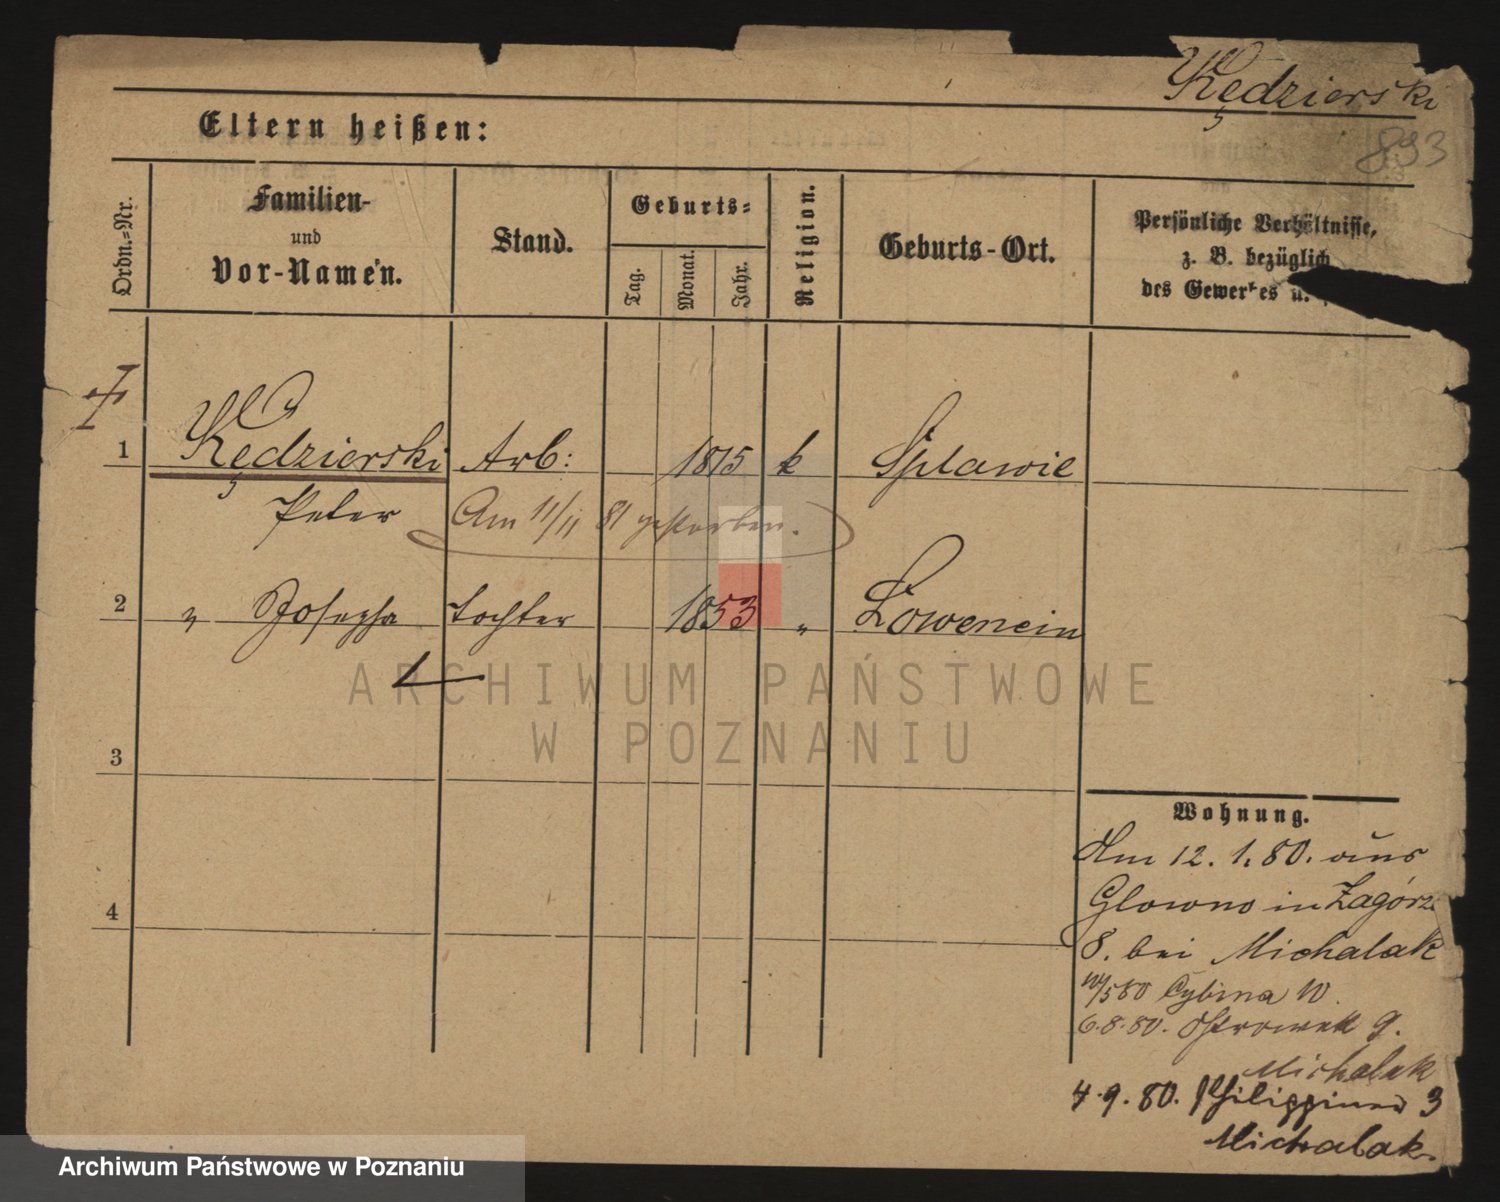 Kędzierski
893
Eltern heißen:
Ordn.=Nr.
Familien-
und
Vor-Namen.
Stand.
Geburts=
Tag.
Monat.
Jahr.
Religion.
Geburts-Ort.
Persönliche Verhältnisse,
z. B. bezüglich
des Gewerbes u.
1 Kędzierski Arb: 1815 k Splawie
Peter Am 11/11 81 gestorben.
2 " Josepha Tochter 1853 " Lowencin
3
4
Wohnung.
Am 12. 1. 80. aus
Glowno in Zagórze
8. bei Michalak
5 80 Cybina 10.
6. 8. 80. Ostrowek 9.
Michalak
4. 9. 80. Philippinen 3
Michalak.
ARCHIWUM PAŃSTWOWE
W POZNANIU
Archiwum Państwowe w Poznaniu